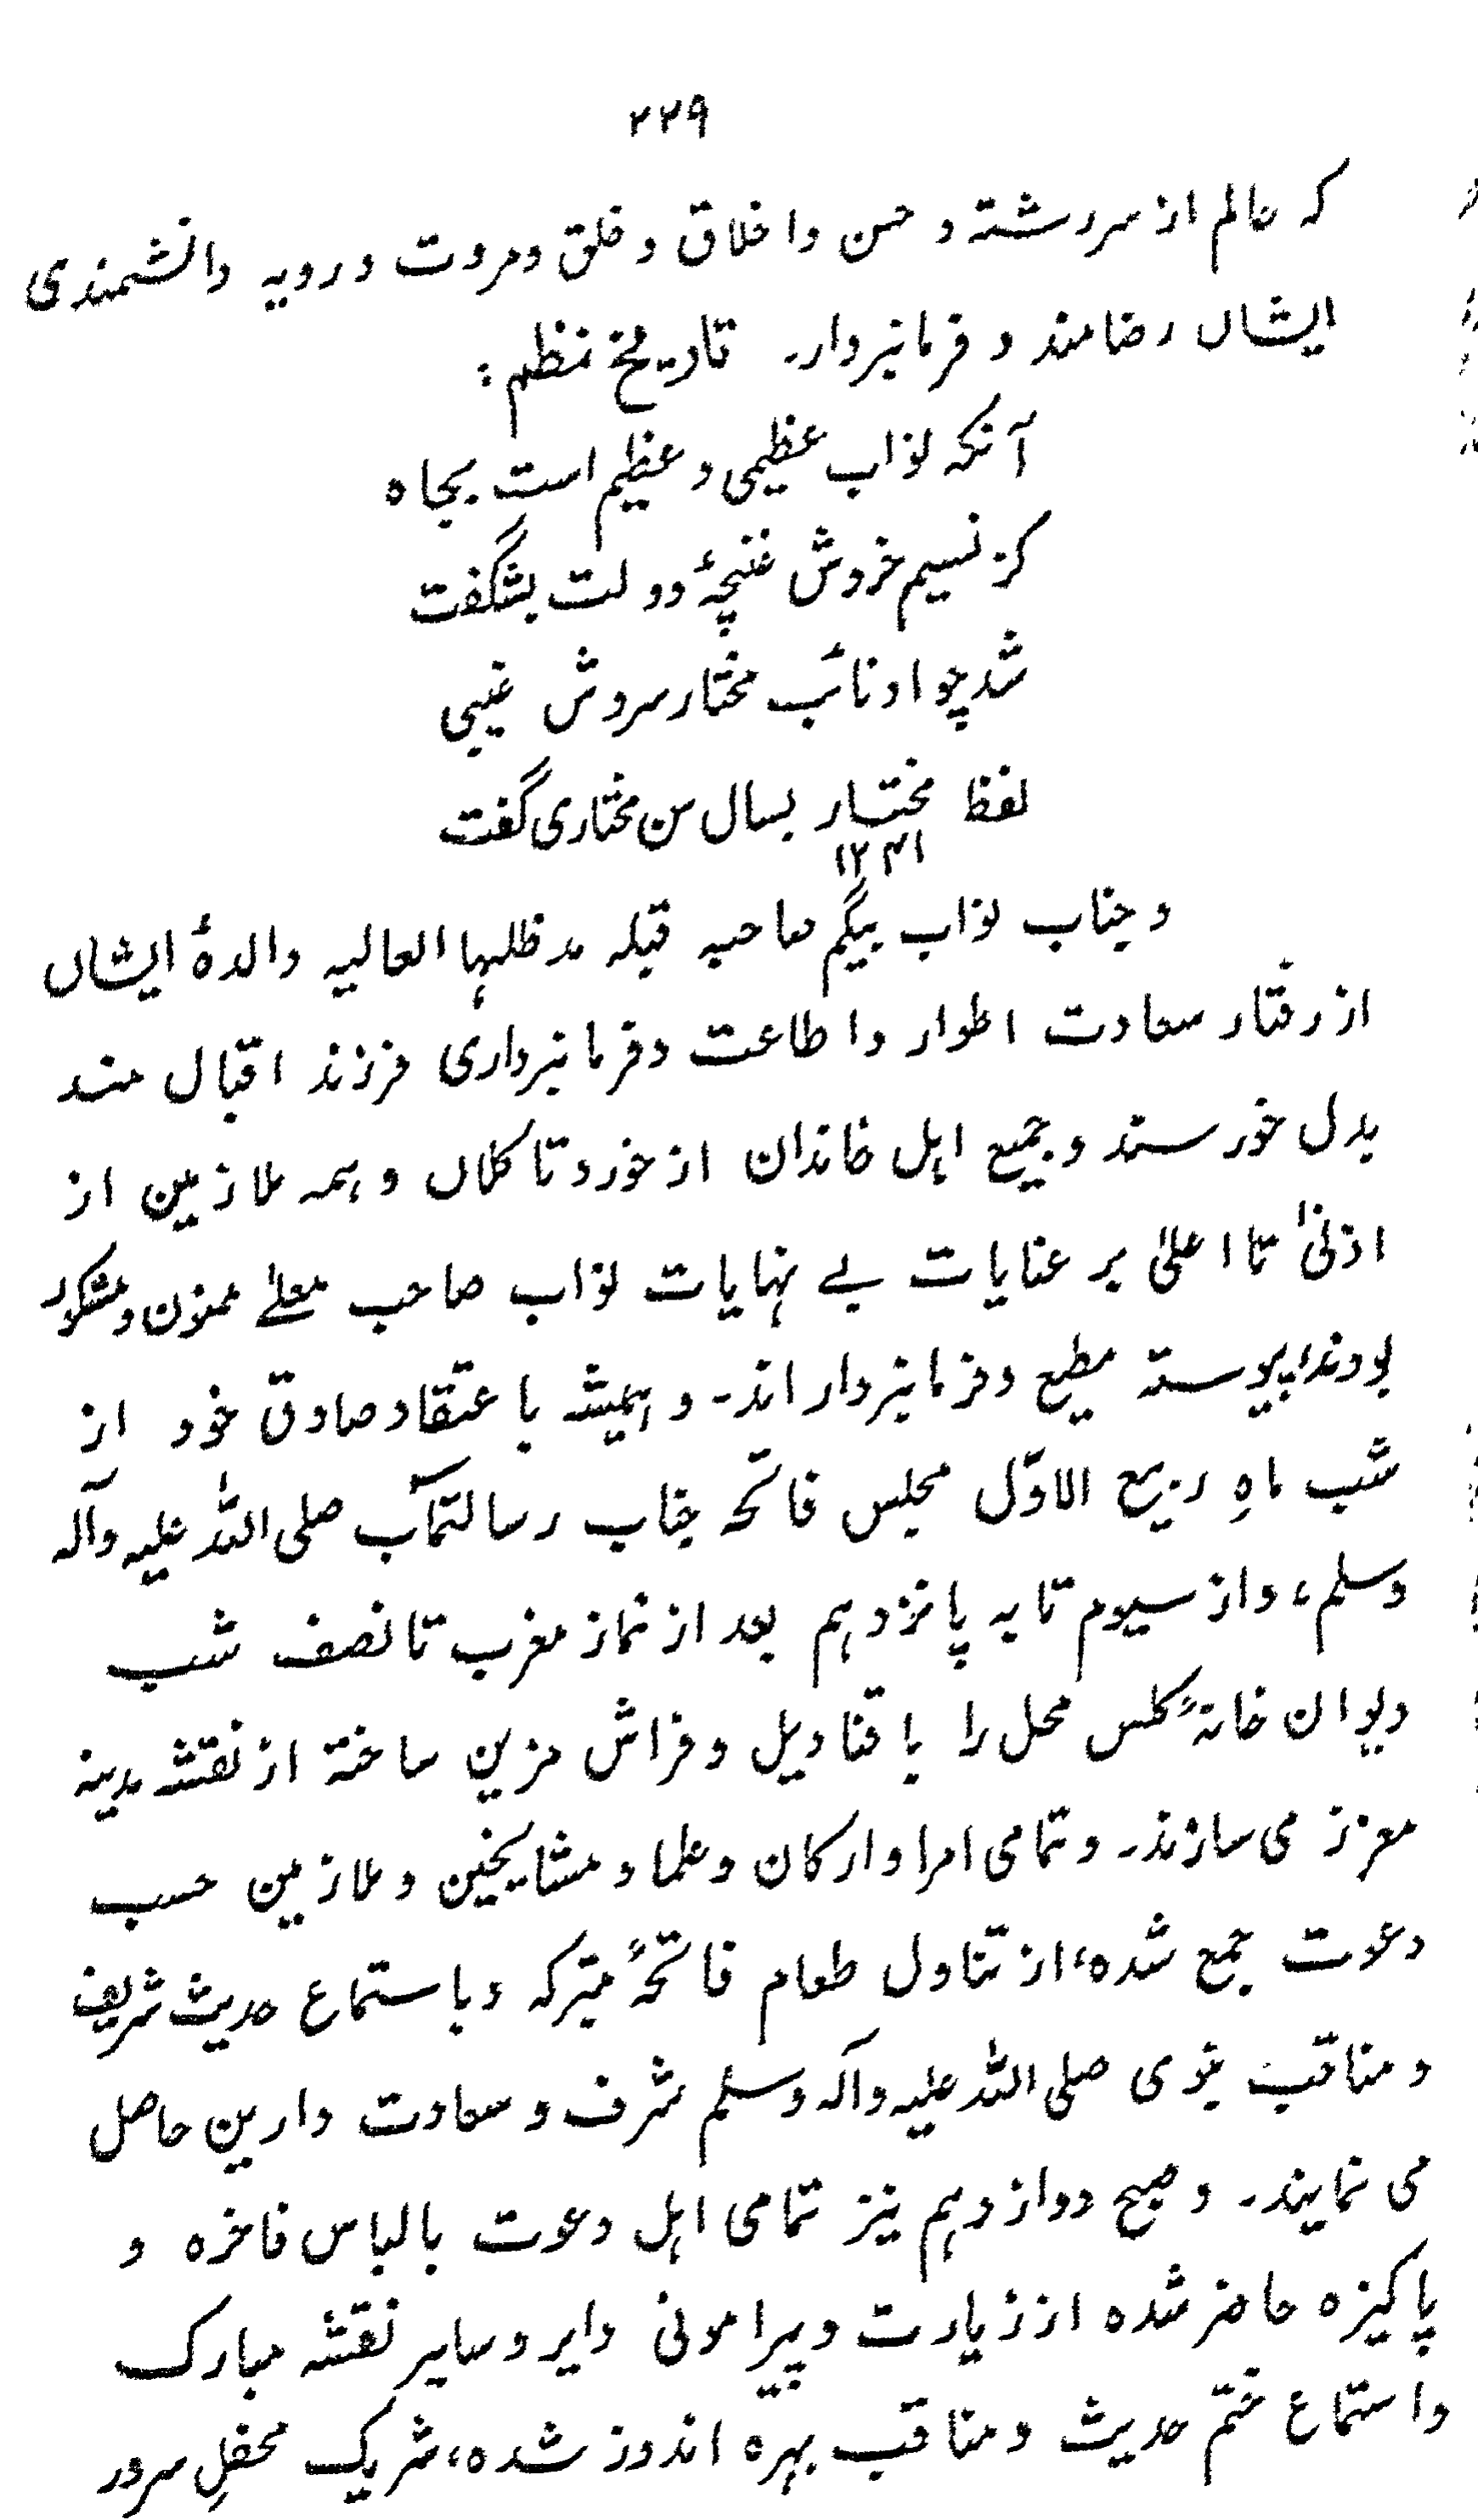 ۲۲۹
کہ عالم از سررشتہ و حسن و اخلاق و خلق و مروت و رویہ دانشمندی
ایشاں رضامند و فرمانبردار۔ تاریخ نظم:
آنکہ نواب عظیمی و عظیم است بجاہ
کز نسیم خردش غنچۂ دولت بشگفت
شد چو او نائب مختار سروش غیبی
لفظ مختار بسال سن مختاری گفت
۱۲۴۱
و جناب نواب بیگم صاحبہ قبلہ مدظلہا العالیہ والدۂ ایشاں
از رفتار سعادت اطوار و اطاعت و فرمانبرداری فرزند اقبال مند
بدل خورسند و جمیع اہل خاندان از خورد تا کلاں و ہمہ ملازمین از
ادنیٰ تا اعلیٰ بر عنایات بے نہایات نواب صاحب معلےٰ ممنون و مشکور
بودند، پیوستہ مطیع و فرمانبردار اند۔ و ہمیشہ با عتقاد صادق خود از
شب ماہِ ربیع الاوّل مجلس فاتحہ جناب رسالتمآب صلی اللہ علیہ وآلہ
وسلم، و از سیوم تا بہ پانزدہم بعد از نماز مغرب تا نصف شب
دیوان خانۂ کلس محل را با قنادیل و فراش مزین ساختہ از نقشہ مدینہ
معزز می سازند۔ و تمامی امرا و ارکان و علما و مشایخین و ملازمین حسب
دعوت جمع شدہ، از تناول طعام فاتحۂ متبرکہ و با ستماع حدیث شریف
و مناقب نبوی صلی اللہ علیہ وآلہ وسلم شرف و سعادت دارین حاصل
می نمایند۔ و صبح دوازدہم نیز تمامی اہل دعوت بالباس فاخرہ و
پاکیزہ حاضر شدہ از زیارت و پیرامونی دایر و سایر نقشہ مبارک
و استماع ختم حدیث و مناقب بہرہ اندوز شدہ، شریک محفلِ سرور